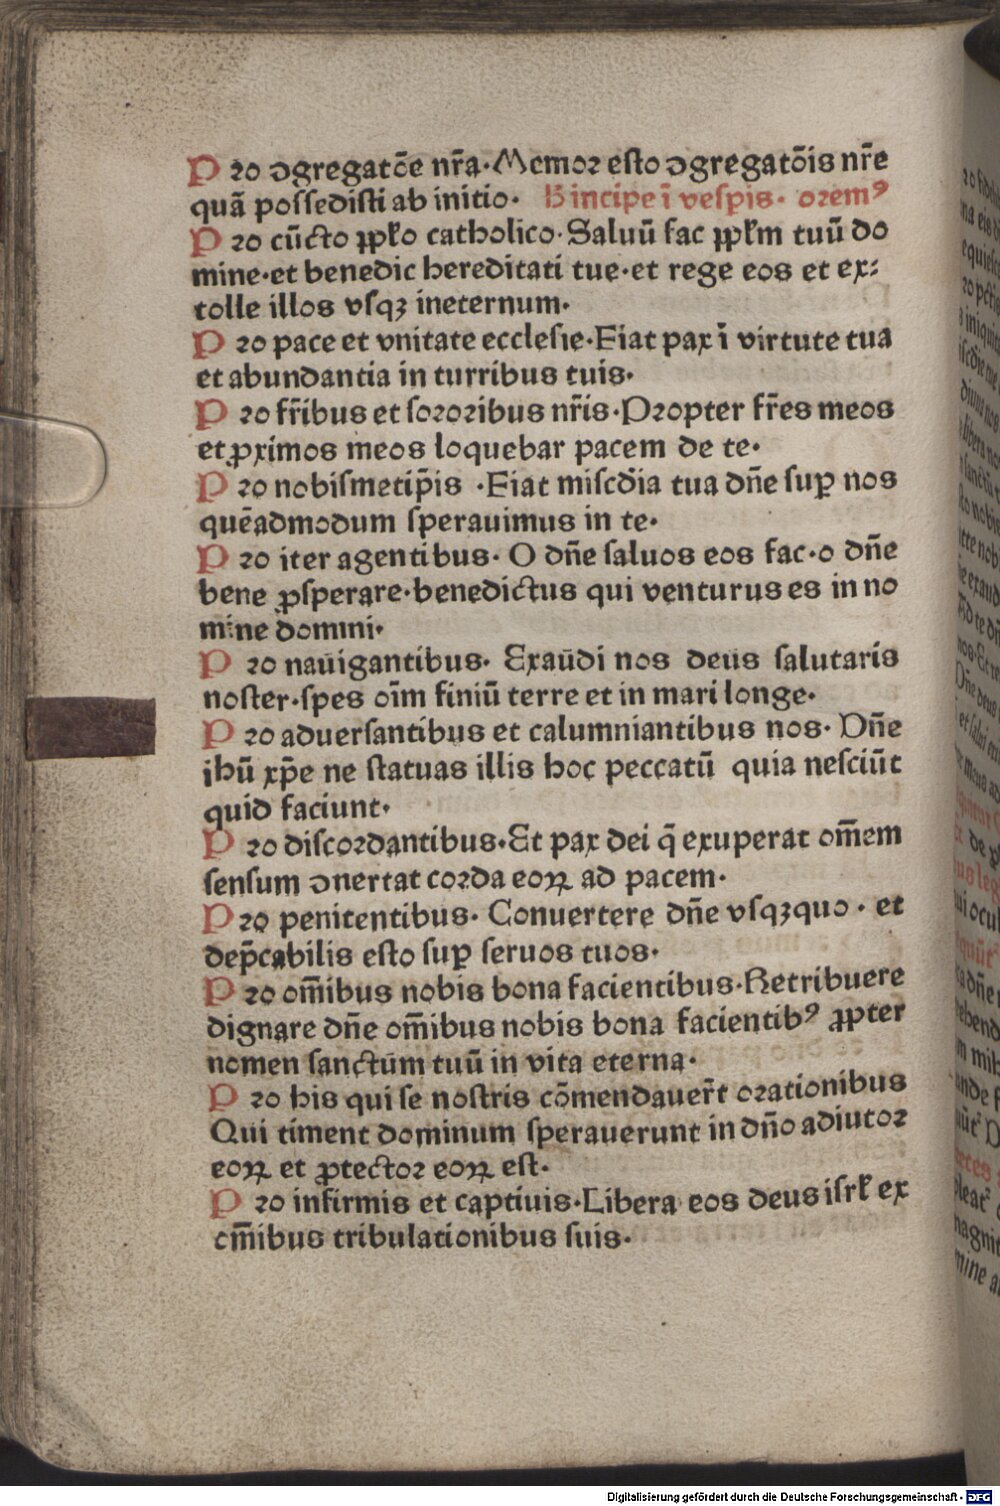 Pro ɔgregatōe nr̄a·Memor esto ɔgregatōis nr̄e
quā possedisti ab initio· Hincipe ī vesp̄is· oremꝰ
Pro cūcto ꝓpl̄o catholico·Saluū fac ꝓpl̄m tuū do
mine·et benedic hereditati tue·et rege eos et ex⸗
tolle illos vsqꝫ ineternum·
Pro pace et vnitate ecclesie·Fiat pax ī virtute tua
et abundantia in turribus tuis·
Pro fr̄ibus et sororibus nr̄is·Propter fr̄es meos
et ꝓximos meos loquebar pacem de te·
Pro nobismetip̄is ·Fiat miscd̄ia tua dn̄e suꝑ nos
quēadmodum sperauimus in te·
Pro iter agentibus· O dn̄e saluos eos fac·o dn̄e
bene ꝓsperare·benedictus qui venturus es in no
mine domini·
Pro nauigantibus· Exaudi nos deus salutaris
noster·spes oīm finiū terre et in mari longe·
Pro aduersantibus et calumniantibus nos· Dn̄e
ihū xp̄e ne statuas illis hoc peccatū quia nesciūt
quid faciunt·
Pro discordantibus·Et pax dei q̄ exuperat om̄em
sensum ɔnertat corda eoꝝ ad pacem·
Pro penitentibus· Conuertere dn̄e vsqꝫquo· et
dep̄cabilis esto suꝑ seruos tuos·
Pro om̄ibus nobis bona facientibus·Retribuere
dignare dn̄e om̄ibus nobis bona facientibꝰ ꝓpter
nomen sanctum tuū in vita eterna·
Pro his qui se nostris cōmendauer̄t orationibus
Qui timent dominum sperauerunt in dn̄o adiutor
eoꝝ et ꝓtector eoꝝ est·
Pro infirmis et captiuis·Libera eos deus isrl̄ ex
om̄ibus tribulationibus suis·
Digitalisierung gefördert durch die Deutsche Forschungsgemeinschaft - DFG